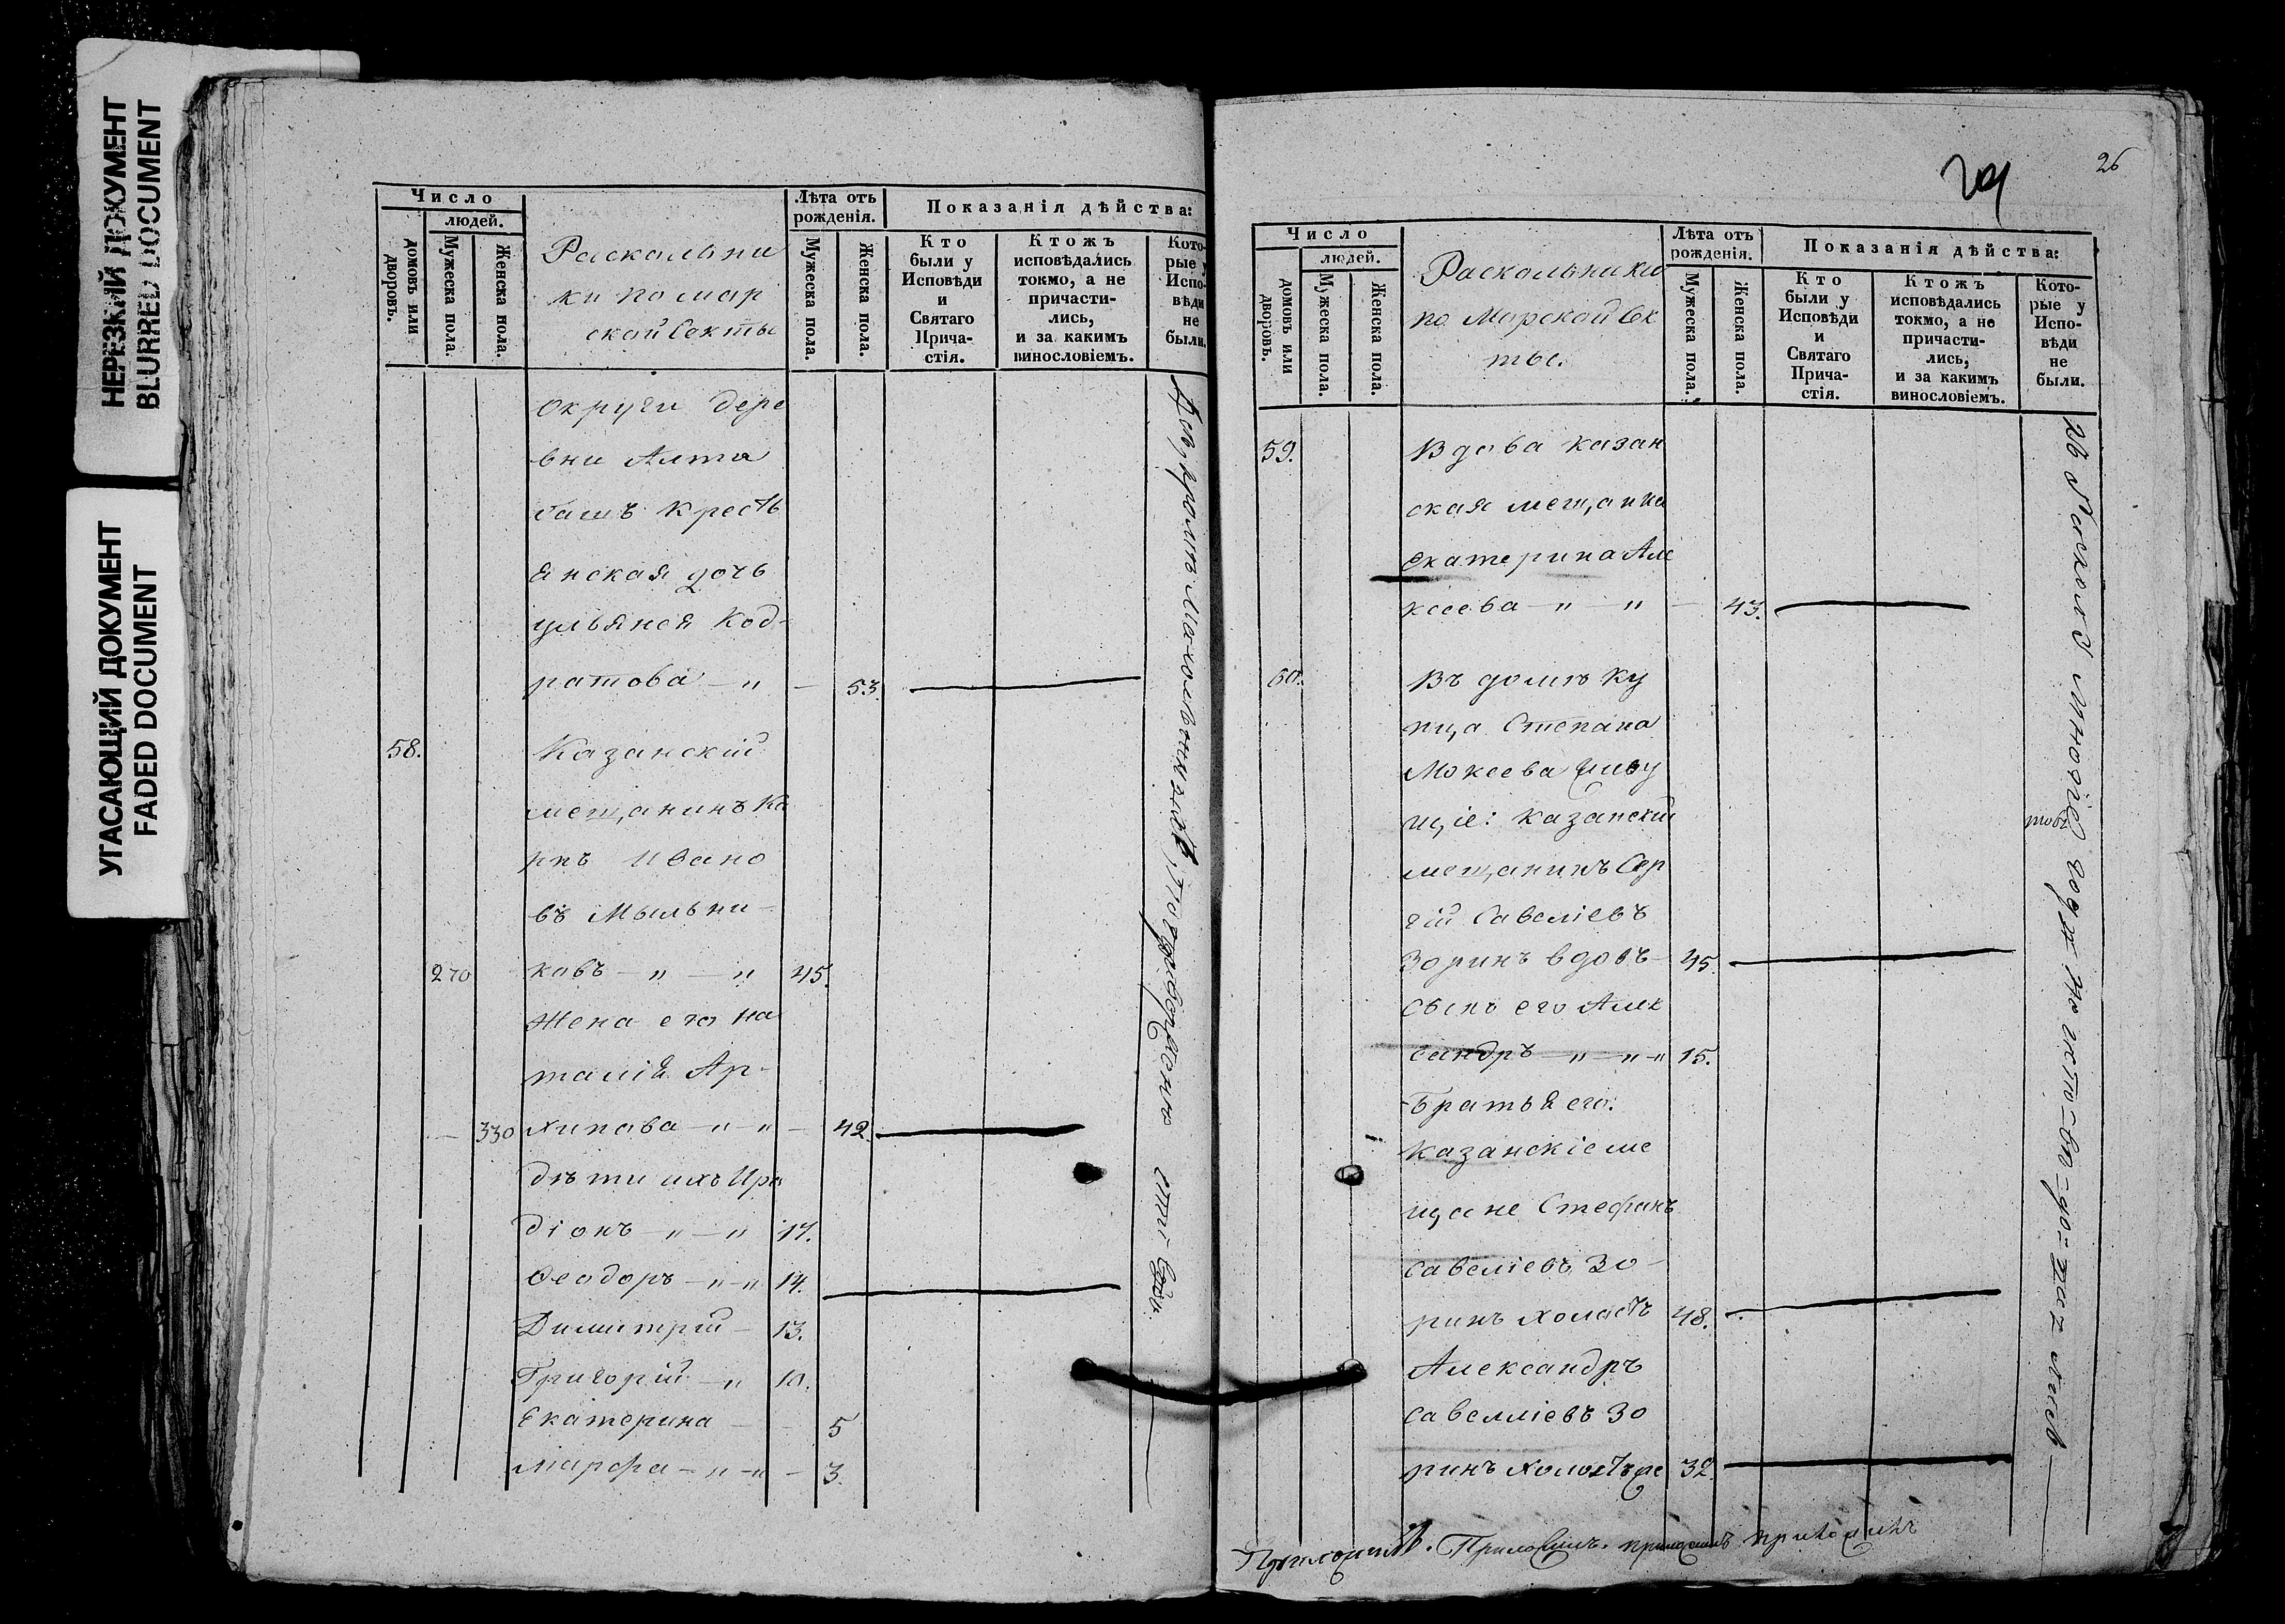 НЕРЕЗКИЙ ДОКУМЕНТ
BLURRED DOCUMENT
УГАСАЮЩИЙ ДОКУМЕНТ
FADED DOCUMENT
Число
людей.
домовъ или дворовъ.
Мужеска пола.
Женска пола.
Раскольни
ки помор
ской Секты
Лѣта отъ рожденія.
Мужеска пола.
Женска пола.
Показанія дѣйства:
Кто были у Исповѣди и Святаго Прича-стія.
Ктожъ исповѣдались токмо, а не причасти-лись, и за какимъ винословіемъ.
Кото-рые у Испо-вѣди не были.
округи дере
вни Алта
башъ Кресть
янская дочь
ульяна Код-
ратова — „ — 53.
58. Казанскій
мещанинъ Ка
рпъ Ивано
въ Мыльни-
270 ковъ — „ — „ 45.
Жена его На
талія Ар-
330 хипова — „ — „ — 42.
дѣти ихъ Ира
діонъ — „ — „ 17.
Ѳеодоръ — „ — „ 14.
Димитрій — 13.
Григорій — „ 10.
Екатерина — — 5
Марфа — „ — „ — 3.
26
Число
людей.
домовъ или дворовъ.
Мужеска пола.
Женска пола.
Раскольники
по Морской Сек
ты.
Лѣта отъ рожденія.
Мужеска пола.
Женска пола.
Показанія дѣйства:
Кто были у Исповѣди и Святаго Прича-стія.
Ктожъ исповѣдались токмо, а не причасти-лись, и за какимъ винословіемъ.
Кото-рые у Испо-вѣди не были.
59. Вдова казан
ская мещанка
екатерина Але
ксеева — „ — „ — 43.
60. Въ домѣ ку
пца Степана
Мокеева живу
щіе: казанскій
мещанинъ Сер
гій Савеліевъ
Зоринъ вдовъ — 45.
сынъ его Алек
сандръ — „ — „ — „ 15.
Братья его:
Казанскіе ме
щане Стефанъ
Савеліевъ Зо-
ринъ холостъ 48.
Александръ
Савелліевъ Зо
ринъ холостъ 32.